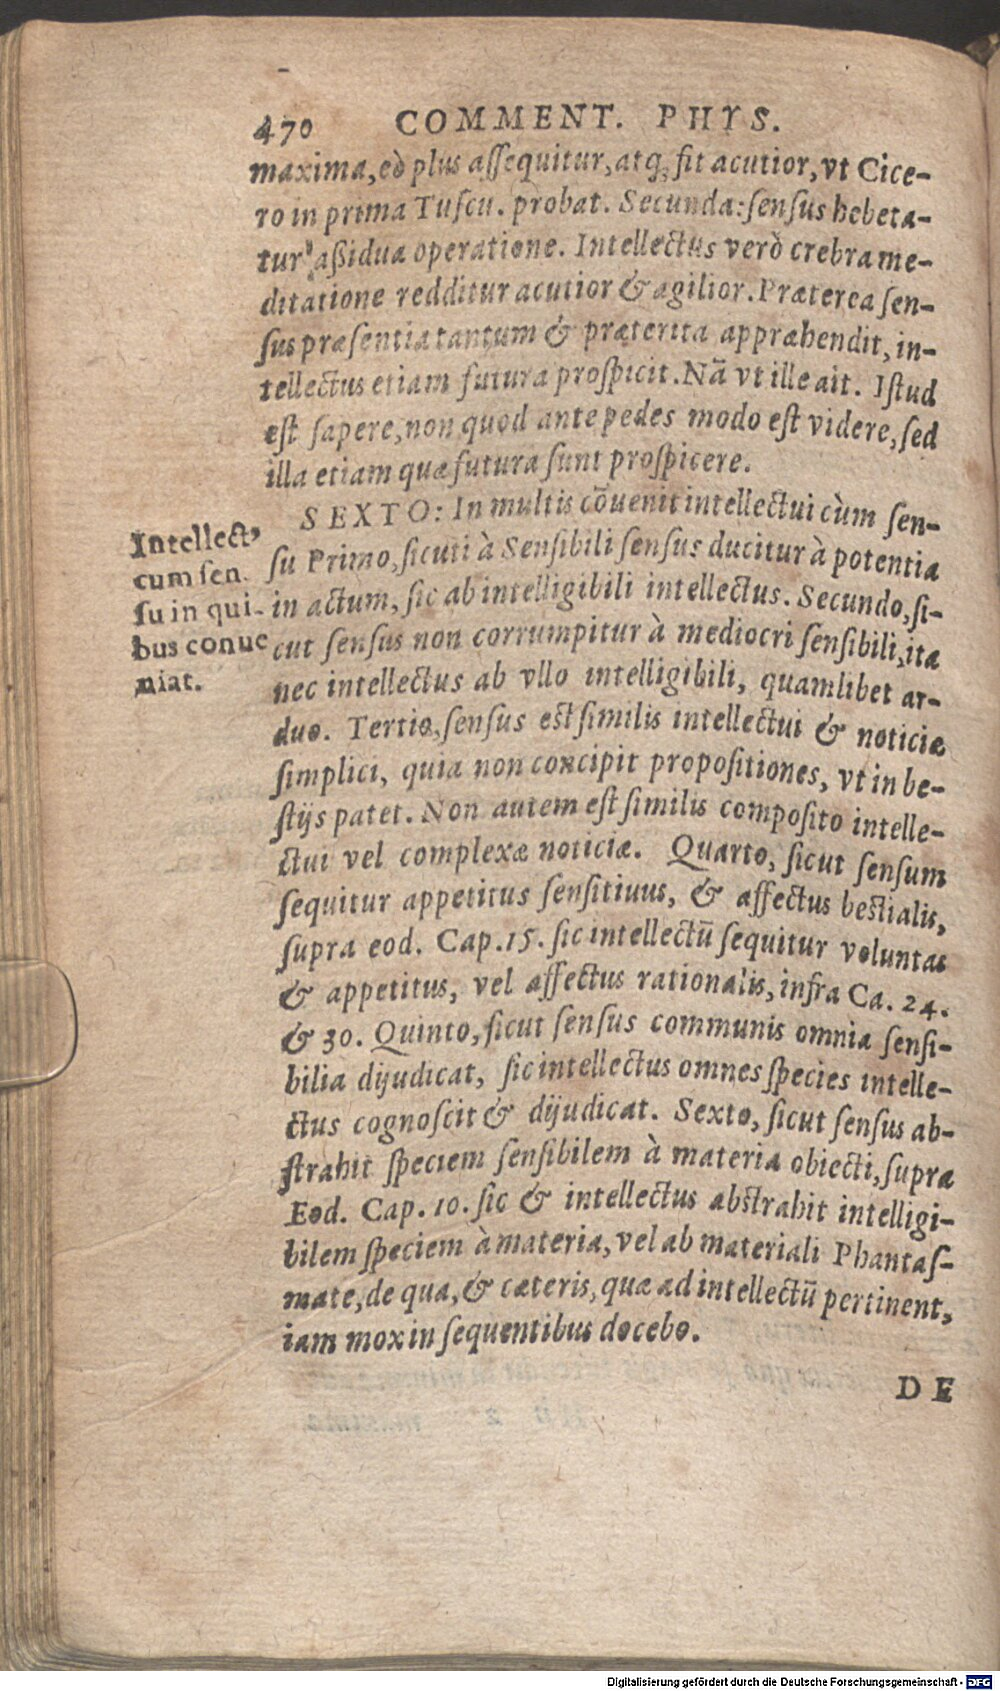 470 COMMENT. PHYS.
maxima, eò plus aſſequitur, atq; fit acutior, vt Cice-
ro in prima Tuſcu. probat. Secunda: ſenſus hebeta-
tur aßidua operatione. Intellectus verò crebra me-
ditatione redditur acutior & agilior. Præterea ſen-
ſus præſentia tantum & præterita appræhendit, in-
tellectus etiam futura proſpicit. Nã vt ille ait. Iſtud
eſt ſapere, non quod ante pedes modo eſt videre, ſed
illa etiam quæ futura ſunt proſpicere.
SEXTO: In multis cõuenit intellectui cùm ſen-
ſu Primo, ſicuti à Senſibili ſenſus ducitur à potentia
in actum, ſic ab intelligibili intellectus. Secundo, ſi-
cut ſenſus non corrumpitur à mediocri ſenſibili, ita
nec intellectus ab vllo intelligibili, quamlibet ar-
duo. Tertio, ſenſus eſt ſimilis intellectui & noticiæ
ſimplici, quia non concipit propoſitiones, vt in be-
ſtijs patet. Non autem eſt ſimilis compoſito intelle-
ctui vel complexæ noticiæ. Quarto, ſicut ſenſum
ſequitur appetitus ſenſitiuus, & affectus beſtialis,
ſupra eod. Cap. 15. ſic intellectũ ſequitur voluntas
& appetitus, vel affectus rationalis, infra Ca. 24.
& 30. Quinto, ſicut ſenſus communis omnia ſenſi-
bilia dijudicat, ſic intellectus omnes ſpecies intelle-
ctus cognoſcit & dijudicat. Sexto, ſicut ſenſus ab-
ſtrahit ſpeciem ſenſibilem à materia obiecti, ſupra
Eod. Cap. 10. ſic & intellectus abſtrahit intelligi-
bilem ſpeciem à materia, vel ab materiali Phantaſ-
mate, de qua, & cæteris, quæ ad intellectũ pertinent,
iam mox in ſequentibus docebo.
DE
Intellect⁹
cum ſen.
ſu in qui-
bus conue
niat.
Digitalisierung gefördert durch die Deutsche Forschungsgemeinschaft - DFG